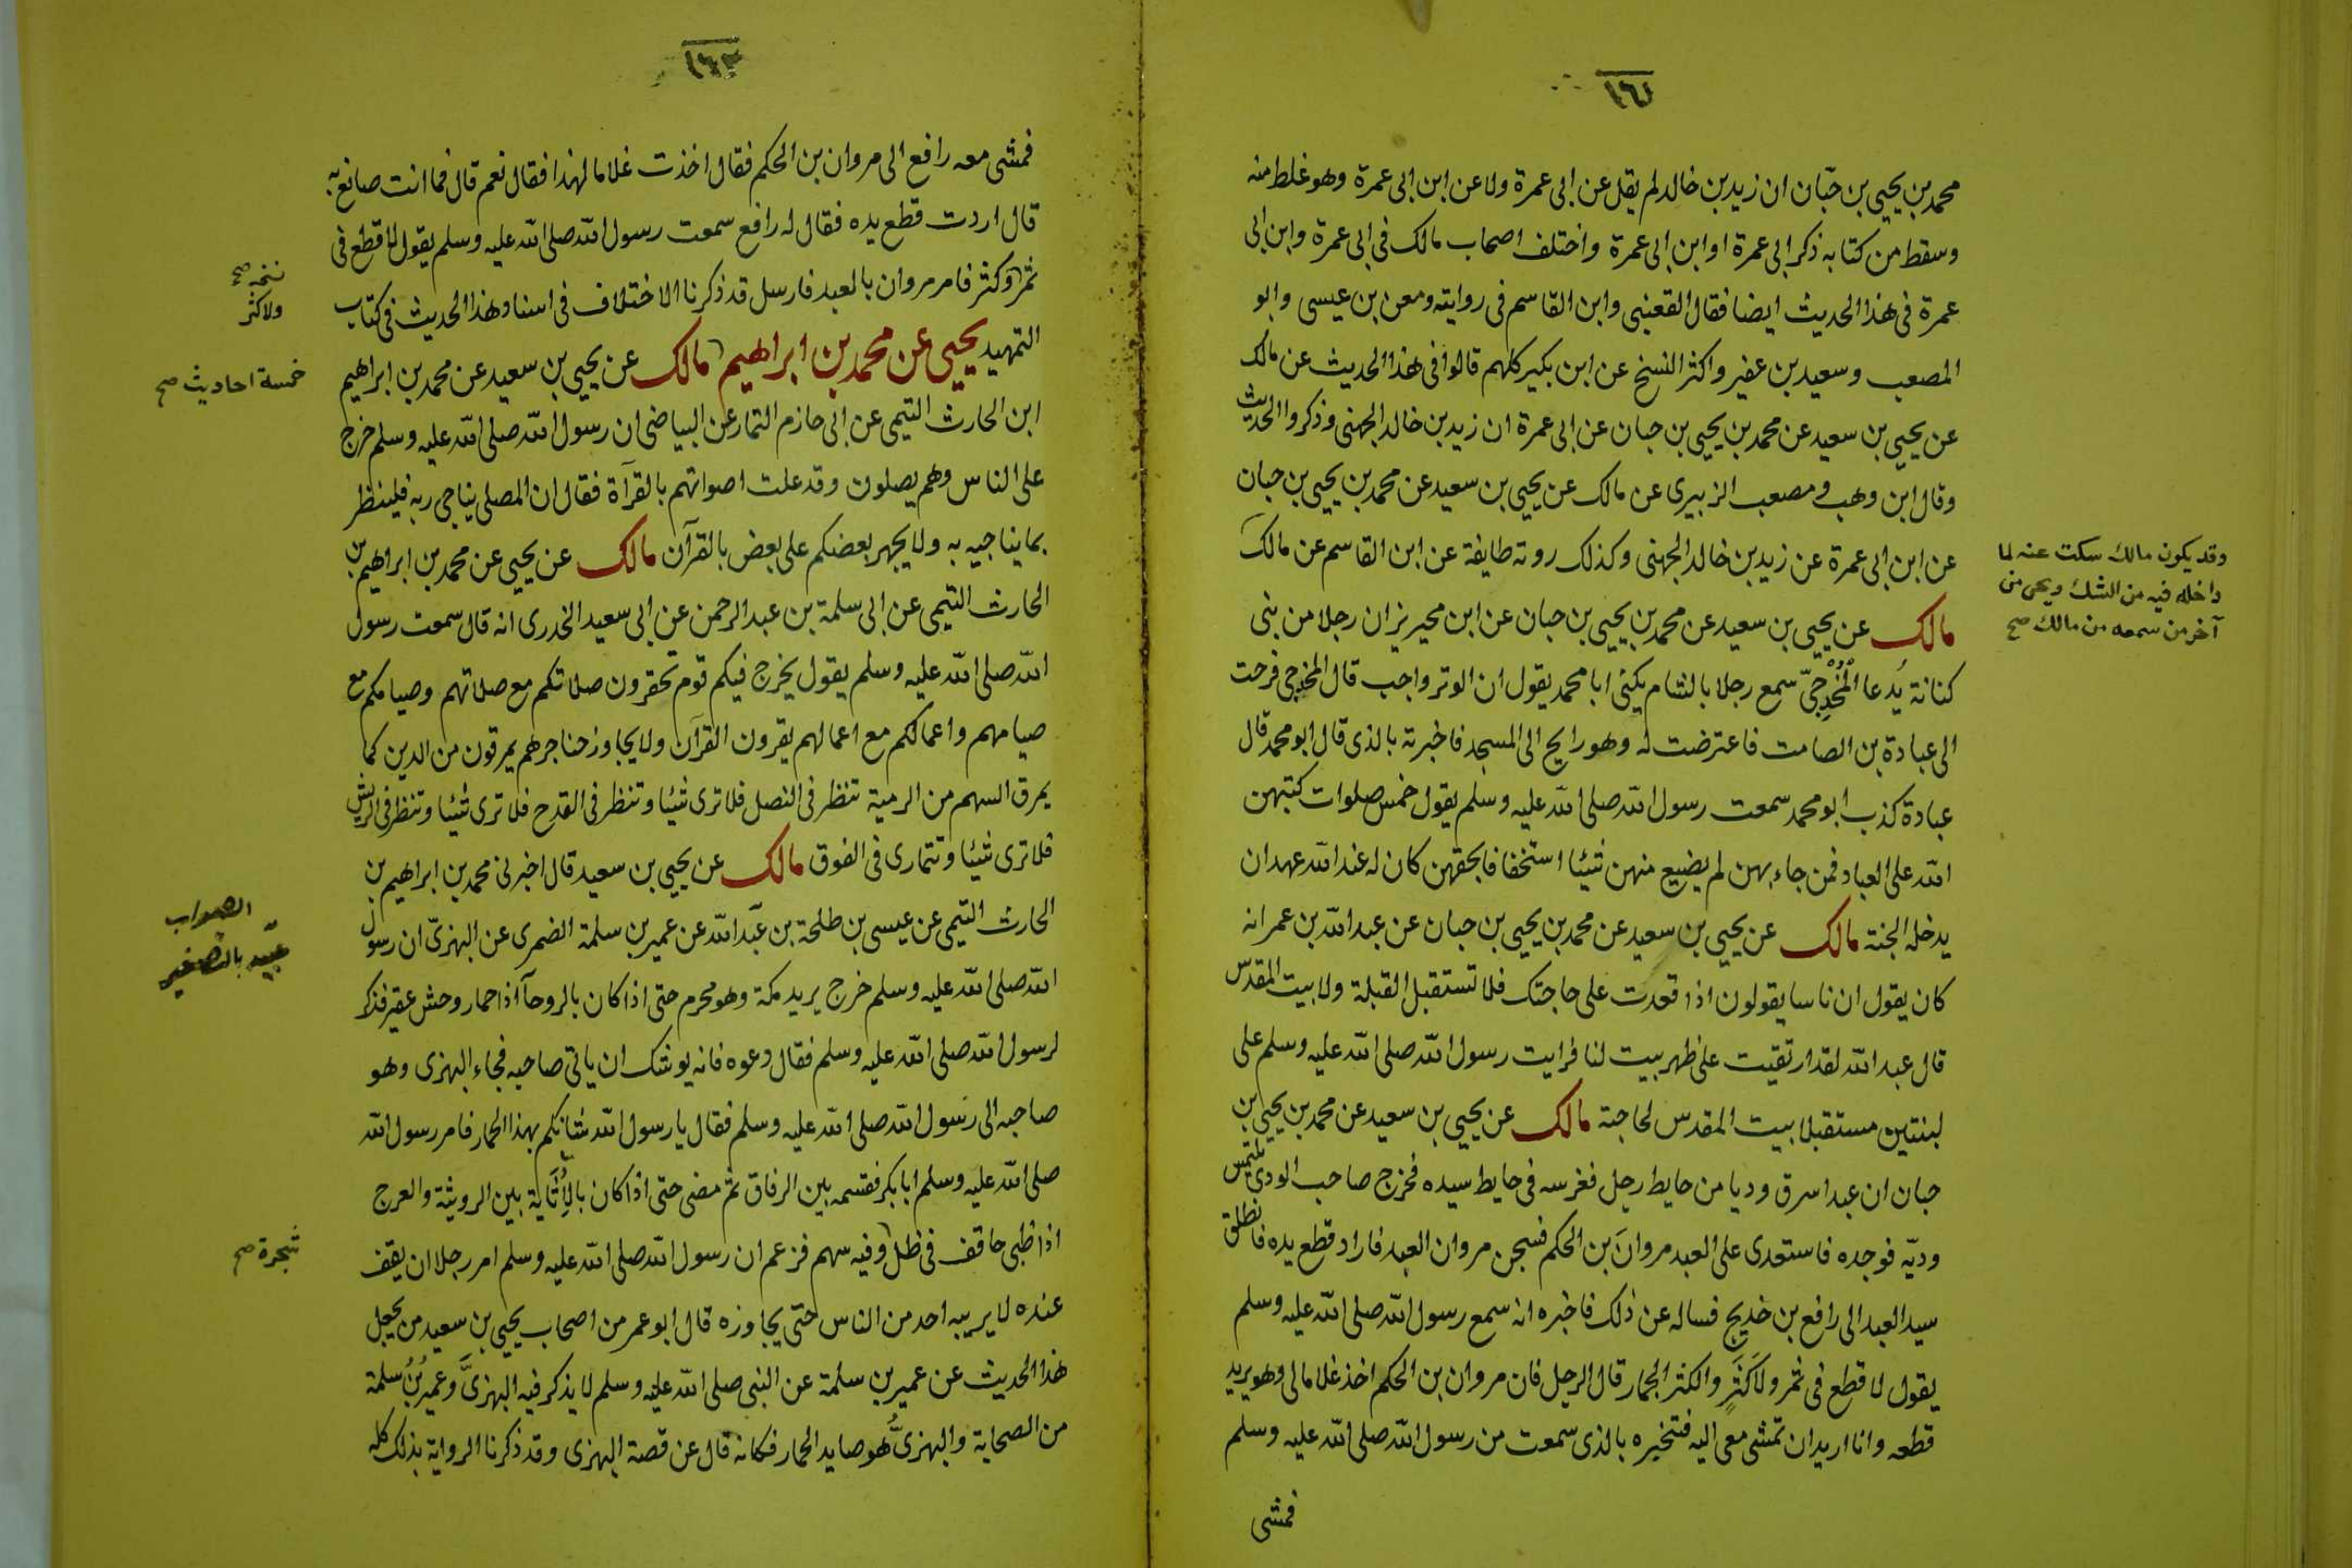 ١٦١
محمد بن يحيى بن حبّان ان زيد بن خالد لم يقل عن ابى عمرة ولا عن ابن ابى عمرة وهو غلط منه
وسقط من كتابه ذكر ابى عمرة او ابن ابى عمرة واختلف اصحاب مالك فى ابى عمرة وابن ابى
عمرة فى هذا الحديث ايضا فقال القعنبى وابن القاسم فى روايته ومعن بن عيسى وابو
المصعب وسعيد بن عفير واكثر النسخ عن ابن بكير كلهم قالوا فى هذا الحديث عن مالك
عن يحيى بن سعيد عن محمد بن يحيى بن حبان عن ابى عمرة ان زيد بن خالد الجهنى وذكروا الحديث
وقال ابن وهب ومصعب الزبيرى عن مالك عن يحيى بن سعيد عن محمد بن يحيى بن حبان
عن ابن ابى عمرة عن زيد بن خالد الجهنى وكذلك روته طايفة عن ابن القاسم عن مالك
وقد يكون مالك سكت عنه لما
داخله فيه من الشك ويحيى من
آخر من سمعه من مالك صح
مالك عن يحيى بن سعيد عن محمد بن يحيى بن حبان عن ابن محيريز ان رجلا من بنى
كنانة يُدعا المُخْدِجىّ سمع رجلا بالشام يكنى ابا محمد يقول ان الوتر واجب قال المخدجى فرحت
الى عبادة بن الصامت فاعترضت له وهو رايح الى المسجد فاخبرته بالذى قال ابو محمد قال
عبادة كذب ابو محمد سمعت رسول الله صلى الله عليه وسلم يقول خمس صلوات كتبهن
الله على العباد فمن جاء بهن لم يضيع منهن شيئا استخفافا بحقهن كان له عند الله عهد ان
يدخله الجنة مالك عن يحيى بن سعيد عن محمد بن يحيى بن حبان عن عبد الله بن عمر انه
كان يقول ان ناسا يقولون اذا قعدت على حاجتك فلا تستقبل القبلة ولا بيت المقدس
قال عبد الله لقد ارتقيت على ظهر بيت لنا فرايت رسول الله صلى الله عليه وسلم على
لبنتين مستقبلا بيت المقدس لحاجته مالك عن يحيى بن سعيد عن محمد بن يحيى بن
حبان ان عبدا سرق وديا من حايط رجل فغرسه فى حايط سيده فخرج صاحب الودى يلتمس
وديّه فوجده فاستعدى على العبد مروان بن الحكم فسجن مروان العبد فاراد قطع يده فانطلق
سيد العبد الى رافع بن خديج فساله عن ذلك فاخبره انه سمع رسول الله صلى الله عليه وسلم
يقول لا قطع فى ثمر ولا كَثَرٍ والكثر الجمار قال الرجل فان مروان بن الحكم اخذ غلاما لى وهو يريد
قطعه وانا اريد ان تمشى معى اليه فتخبره بالذى سمعت من رسول الله صلى الله عليه وسلم
فمشى
فمشى معه رافع الى مروان بن الحكم فقال اخذت غلاما لهذا فقال نعم قال فما انت صانع به
قال اردت قطع يده فقال له رافع سمعت رسول الله صلى الله عليه وسلم يقول لا قطع فى
ثمر وكثر فامر مروان بالعبد فارسل قد ذكرنا الاختلاف فى اسناد هذا الحديث فى كتاب
ولا كثر
التمهيد يحيى عن محمد بن ابراهيم مالك عن يحيى بن سعيد عن محمد بن ابراهيم
خمسة احاديث صح
ابن الحارث التيمى عن ابى حازم التمار عن البياضى ان رسول الله صلى الله عليه وسلم خرج
على الناس وهم يصلون وقد علت اصواتهم بالقرآة فقال ان المصلى يناجى ربه فلينظر
بما يناجيه به ولا يجهر بعضكم على بعض بالقرآن مالك عن يحيى عن محمد بن ابراهيم بن
الحارث التيمى عن ابى سلمة بن عبد الرحمن عن ابى سعيد الخدرى انه قال سمعت رسول
الله صلى الله عليه وسلم يقول يخرج فيكم قوم تحقرون صلاتكم مع صلاتهم وصيامكم مع
صيامهم واعمالكم مع اعمالهم يقرون القرآن ولا يجاوز حناجرهم يمرقون من الدين كما
يمرق السهم من الرمية تنظر فى النصل فلا ترى شيئا وتنظر فى القدح فلا ترى شيئا وتنظر فى الريش
فلا ترى شيئا وتتمارى فى الفوق مالك عن يحيى بن سعيد قال اخبرنى محمد بن ابراهيم بن
الحارث التيمى عن عيسى بن طلحة بن عبد الله عن عمير بن سلمة الضمرى عن البهزىّ ان رسول
الصواب
عبيد بالتصغير
الله صلى الله عليه وسلم خرج يريد مكة وهو محرم حتى اذا كان بالروحآ اذا حمار وحش عقير فذكر
لرسول الله صلى الله عليه وسلم فقال دعوه فانه يوشك ان ياتى صاحبه فجاء البهزى وهو
صاحبه الى رسول الله صلى الله عليه وسلم فقال يا رسول الله شانكم بهذا الحمار فامر رسول الله
صلى الله عليه وسلم ابا بكر فقسمه بين الرفاق ثم مضى حتى اذا كان بالأُثاية بين الرويثة والعرج
اذا ظبى حاقف فى ظل وفيه سهم فزعم ان رسول الله صلى الله عليه وسلم امر رجلا ان يقف
شجرة صح
عنده لا يريبه احد من الناس حتى يجاوزه قال ابو عمر من اصحاب يحيى بن سعيد من يجعل
هذا الحديث عن عمير بن سلمة عن النبى صلى الله عليه وسلم لا يذكر فيه البهزىَّ وعمير بنُ سلمة
من الصحابة والبهزىُّ هو صايد الحمار فكانه قال عن قصة البهزى وقد ذكرنا الرواية بذلك كله